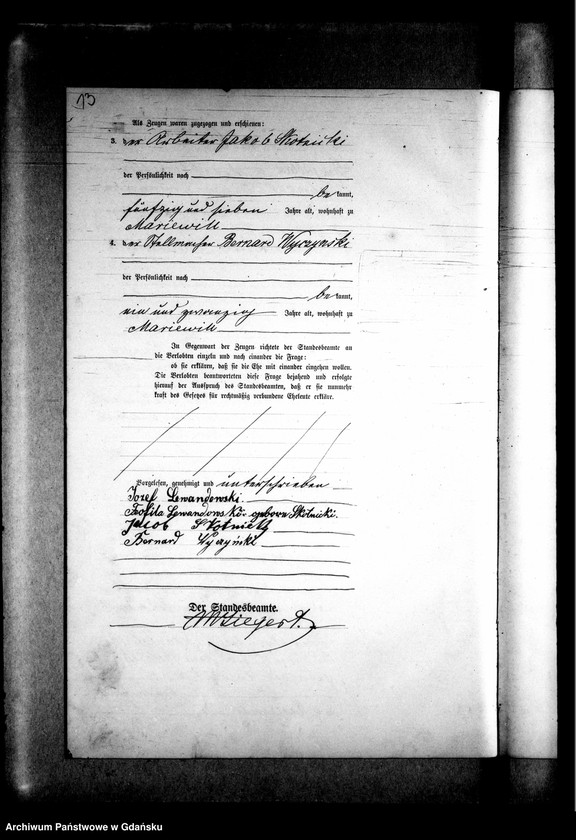 13
Als Zeugen waren zugezogen und erschienen:
3. der Arbeiter Jakob Skotnicki
der Persönlichkeit nach
bekannt,
fünfzig und sieben Jahre alt, wohnhaft zu
Mariewill
4. der Stellmacher Bernard Wyczynski
der Persönlichkeit nach
bekannt,
ein und zwanzig Jahre alt, wohnhaft zu
Mariewill
In Gegenwart der Zeugen richtete der Standesbeamte an
die Verlobten einzeln und nach einander die Frage:
ob sie erklären, daß sie die Ehe mit einander eingehen wollen.
Die Verlobten beantworteten diese Frage bejahend und erfolgte
hierauf der Ausspruch des Standesbeamten, daß er sie nunmehr
kraft des Gesetzes für rechtmäßig verbundene Eheleute erkläre.
Vorgelesen, genehmigt und unterschrieben
Jozef Lewandowski
Teofila Lewandowskó geborn Skotnicki.
Jacob Skotnicki
Bernard Wyczyński
Der Standesbeamte.
Archiwum Państwowe w Gdańsku